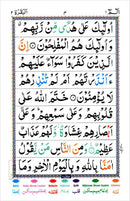 البقرة ٢ ٣ الٓمّٓ ١
اُولٰٓئِكَ عَلٰى هُدًى مِّنْ رَّبِّهِمْ
وَاُولٰٓئِكَ هُمُ الْمُفْلِحُوْنَ ۝ اِنَّ
الَّذِيْنَ كَفَرُوْا سَوَآءٌ عَلَيْهِمْ
ءَاَنْذَرْتَهُمْ اَمْ لَمْ تُنْذِرْهُمْ
لَا يُؤْمِنُوْنَ ۝ خَتَمَ اللّٰهُ عَلٰى
قُلُوْبِهِمْ وَعَلٰى سَمْعِهِمْ وَعَلٰٓى
اَبْصَارِهِمْ غِشَاوَةٌ وَّلَهُمْ عَذَابٌ
عَظِيْمٌ ۝ وَمِنَ النَّاسِ مَنْ يَّقُوْلُ
اٰمَنَّا بِاللّٰهِ وَبِالْيَوْمِ الْاٰخِرِ وَمَا